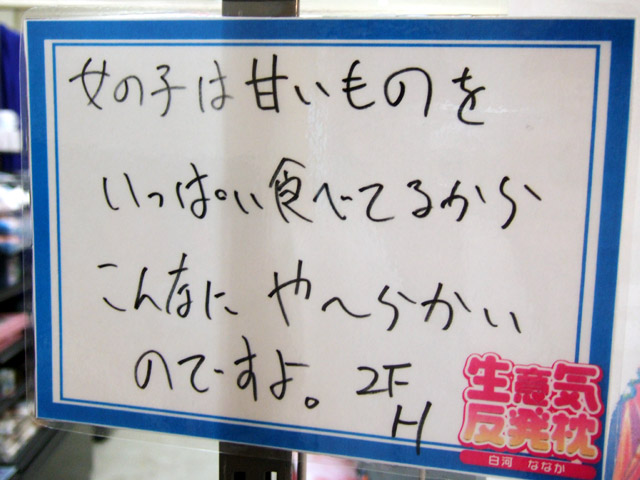 女の子は甘いものを
いっぱい食べてるから
こんなに や〜らかい
のですよ。 2F
H
生意気
反発枕
白河 ななか